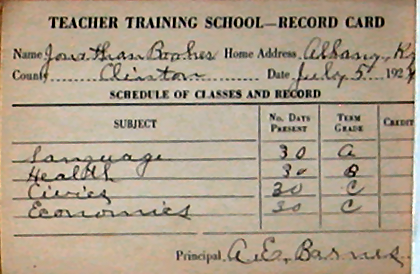 TEACHER TRAINING SCHOOL—RECORD CARD
Name Jonathan Booher Home Address Albany, Ky
County Clinton Date July 5 192
SCHEDULE OF CLASSES AND RECORD
SUBJECT No. DAYS PRESENT TERM GRADE CREDIT
Language 30 A
Health 30 B
Civics 30 C
Economics 30 C
Principal A.E. Barnes